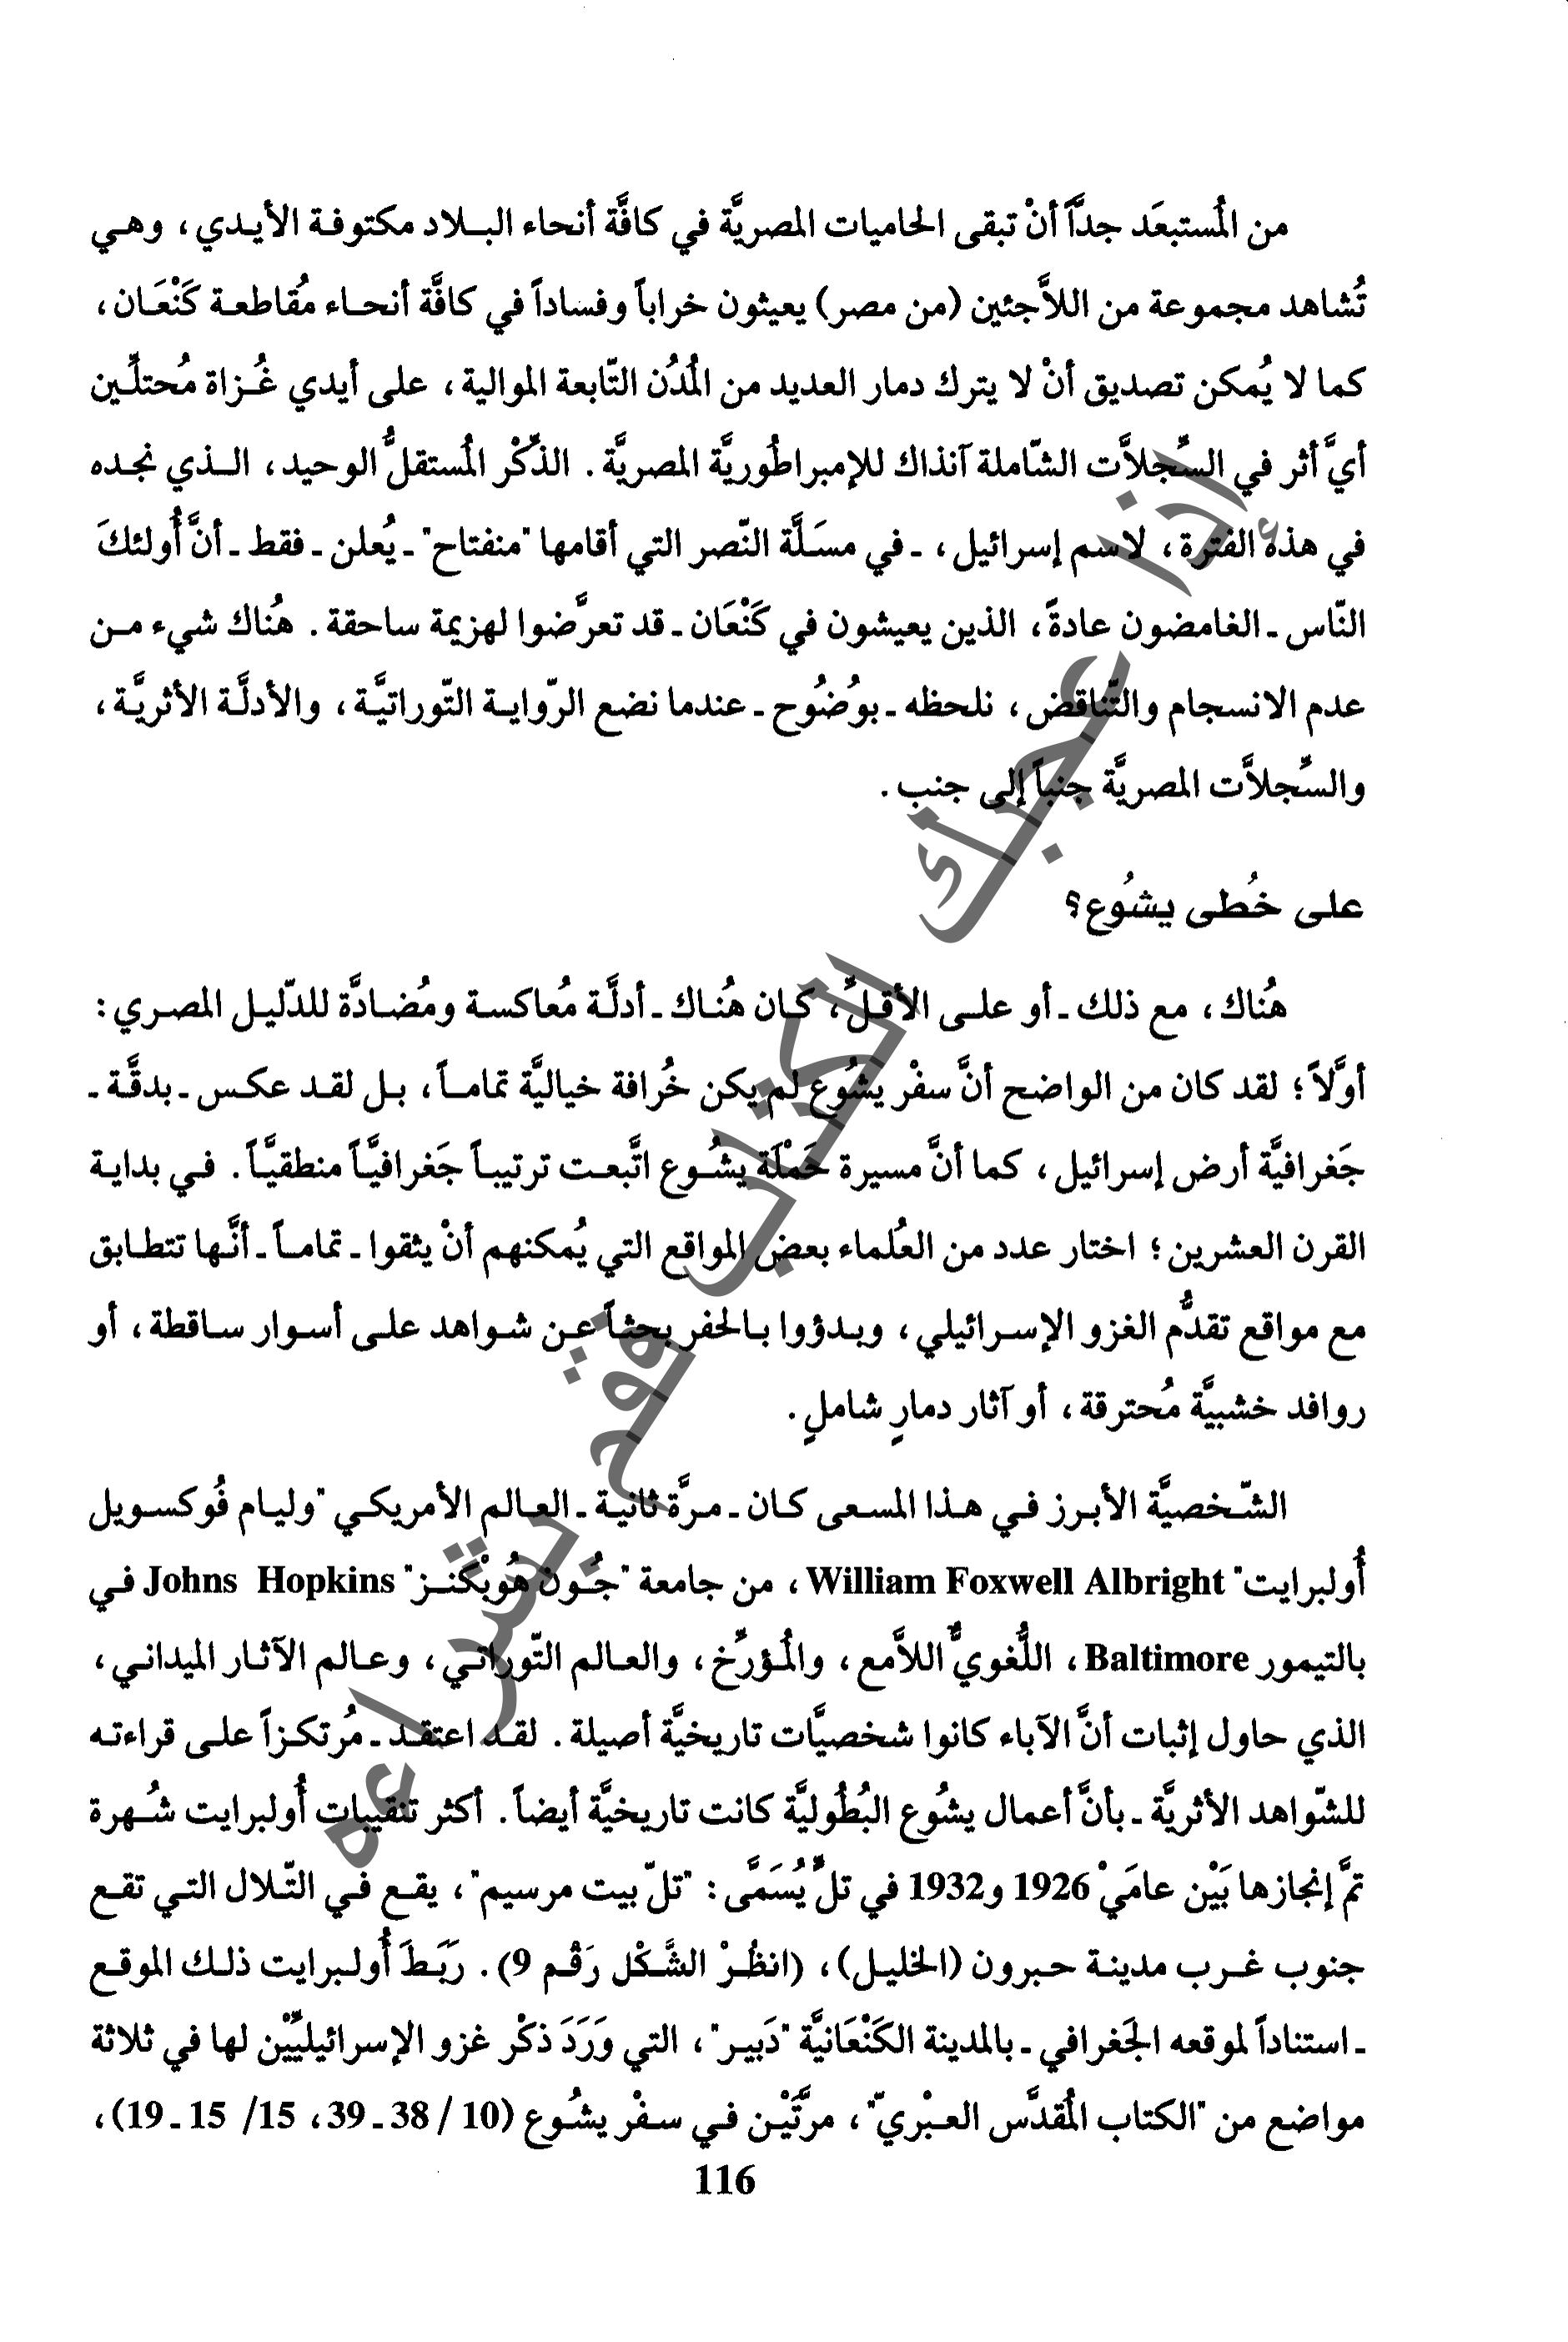 من المُستبعَد جدَّاً أنْ تبقى الحاميات المصريَّة في كافَّة أنحاء البلاد مكتوفة الأيدي، وهي
تُشاهد مجموعة من اللاَّجئين (من مصر) يعيثون خراباً وفساداً في كافَّة أنحاء مُقاطعة كَنْعَان،
كما لا يُمكن تصديق أنْ لا يترك دمار العديد من المُدُن التّابعة الموالية، على أيدي غُزاة مُحتلِّين
أيَّ أثر في السِّجلاَّت الشّاملة آنذاك للإمبراطُوريَّة المصريَّة. الذِّكْر المُستقلُّ الوحيد، الذي نجده
في هذه الفترة، لاسم إسرائيل، ـ في مسَلَّة النّصر التي أقامها "منفتاح" ـ يُعلن ـ فقط ـ أنَّ أُولئكَ
النّاس ـ الغامضون عادةً، الذين يعيشون في كَنْعَان ـ قد تعرَّضوا لهزيمة ساحقة. هُناك شيء من
عدم الانسجام والتّناقض، نلحظه ـ بوُضُوح ـ عندما نضع الرّواية التّوراتيَّة، والأدلَّة الأثريَّة،
والسِّجلاَّت المصريَّة جنباً إلى جنب.
على خُطى يشُوع؟
هُناك، مع ذلك ـ أو على الأقلِّ، كان هُناك ـ أدلَّة مُعاكسة ومُضادَّة للدّليل المصري:
أوَّلاً؛ لقد كان من الواضح أنَّ سفْر يشُوع لم يكن خُرافة خياليَّة تماماً، بل لقد عكس ـ بدقَّة ـ
جَغرافيَّة أرض إسرائيل، كما أنَّ مسيرة حَمْلَة يشُوع اتَّبعت ترتيباً جَغرافيَّاً منطقيَّاً. في بداية
القرن العشرين؛ اختار عدد من العُلماء بعض المواقع التي يُمكنهم أنْ يثقوا ـ تماماً ـ أنَّها تتطابق
مع مواقع تقدُّم الغزو الإسرائيلي، وبدؤوا بالحفر بحثاً عن شواهد على أسوار ساقطة، أو
روافد خشبيَّة مُحترقة، أو آثار دمارٍ شاملٍ.
الشّخصيَّة الأبرز في هذا المسعى كان ـ مرَّة ثانية ـ العالم الأمريكي "وليام فُوكسويل
أُولبرايت" William Foxwell Albright، من جامعة "جُون هُوبْكنز" Johns Hopkins في
بالتيمور Baltimore، اللُّغويُّ اللاَّمع، والمُؤرِّخ، والعالم التّوراتي، وعالم الآثار الميداني،
الذي حاول إثبات أنَّ الآباء كانوا شخصيَّات تاريخيَّة أصيلة. لقد اعتقد ـ مُرتكزاً على قراءته
للشّواهد الأثريَّة ـ بأنَّ أعمال يشُوع البُطُوليَّة كانت تاريخيَّة أيضاً. أكثر تنقيبات أُولبرايت شُهرة
تمَّ إنجازها بَيْن عامَيْ 1926 و1932 في تلٍّ يُسَمَّى: "تلّ بيت مرسيم"، يقع في التّلال التي تقع
جنوب غرب مدينة حبرون (الخليل)، (انظُرْ الشَّكْل رَقْم 9). رَبَطَ أُولبرايت ذلك الموقع
ـ استناداً لموقعه الجَغرافي ـ بالمدينة الكَنْعَانيَّة "دَبير"، التي وَرَدَ ذكْر غزو الإسرائيليِّيْن لها في ثلاثة
مواضع من "الكتاب المُقدَّس العبْريّ"، مرَّتَيْن في سفْر يشُوع (10 / 38 ـ 39، 15/ 15 ـ 19)،
116
إذا عجبك الكتاب فقم بشراءه